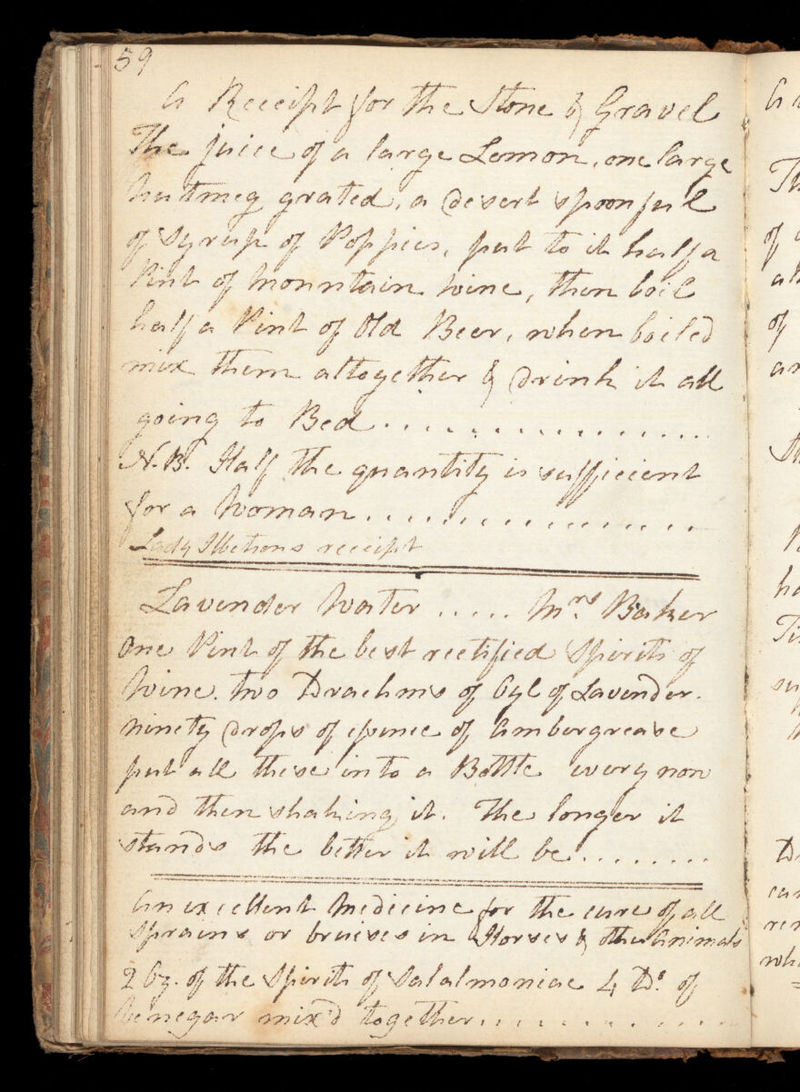 59
A Receipt for the Stone & Gravel
The juice of a large Lemon, one large
Nutmeg grated, a desert spoonful
of Syrup of Poppies, put to it half a
Pint of Mountain Wine, then boil
half a Pint of Old Beer, when boiled
mix them altogether & drink it all
going to Bed..................
N.B. Half the quantity is sufficient
for a Woman..................
Lady receipt
Lavender Water ..... Mrs Baker
One Pint of the best rectified Spirits of
Wine. two Drachms of Oyl of Lavender.
ninety drops of essence of Ambergrease
put all these into a Bottle every now
and then shaking it. The longer it
stands the better it will be.........
An excellent Medicine for the cure of all
Sprains or bruises in Horses & other Animals
2 Oz. of the Spirits of Salalmoniac 4 Do. of
Venegar mix'd together................